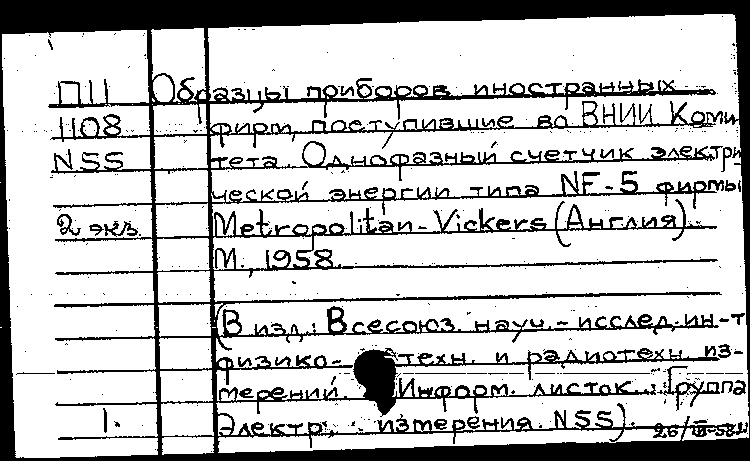 П11 Образцы приборов иностранных
1108 фирм, поступившие во ВНИИ Коми-
N55 тета. Однофазный счетчик электри
ческой энергии типа NF-5 фирмы
2 экз. Metropolitan-Vickers (Англия).
М., 1958.
(В изд.: Всесоюз. науч.-исслед. ин-т
физико-техн. и радиотехн. из-
мерений. Информ. листок. Группа
1. Электр. измерения. N55).